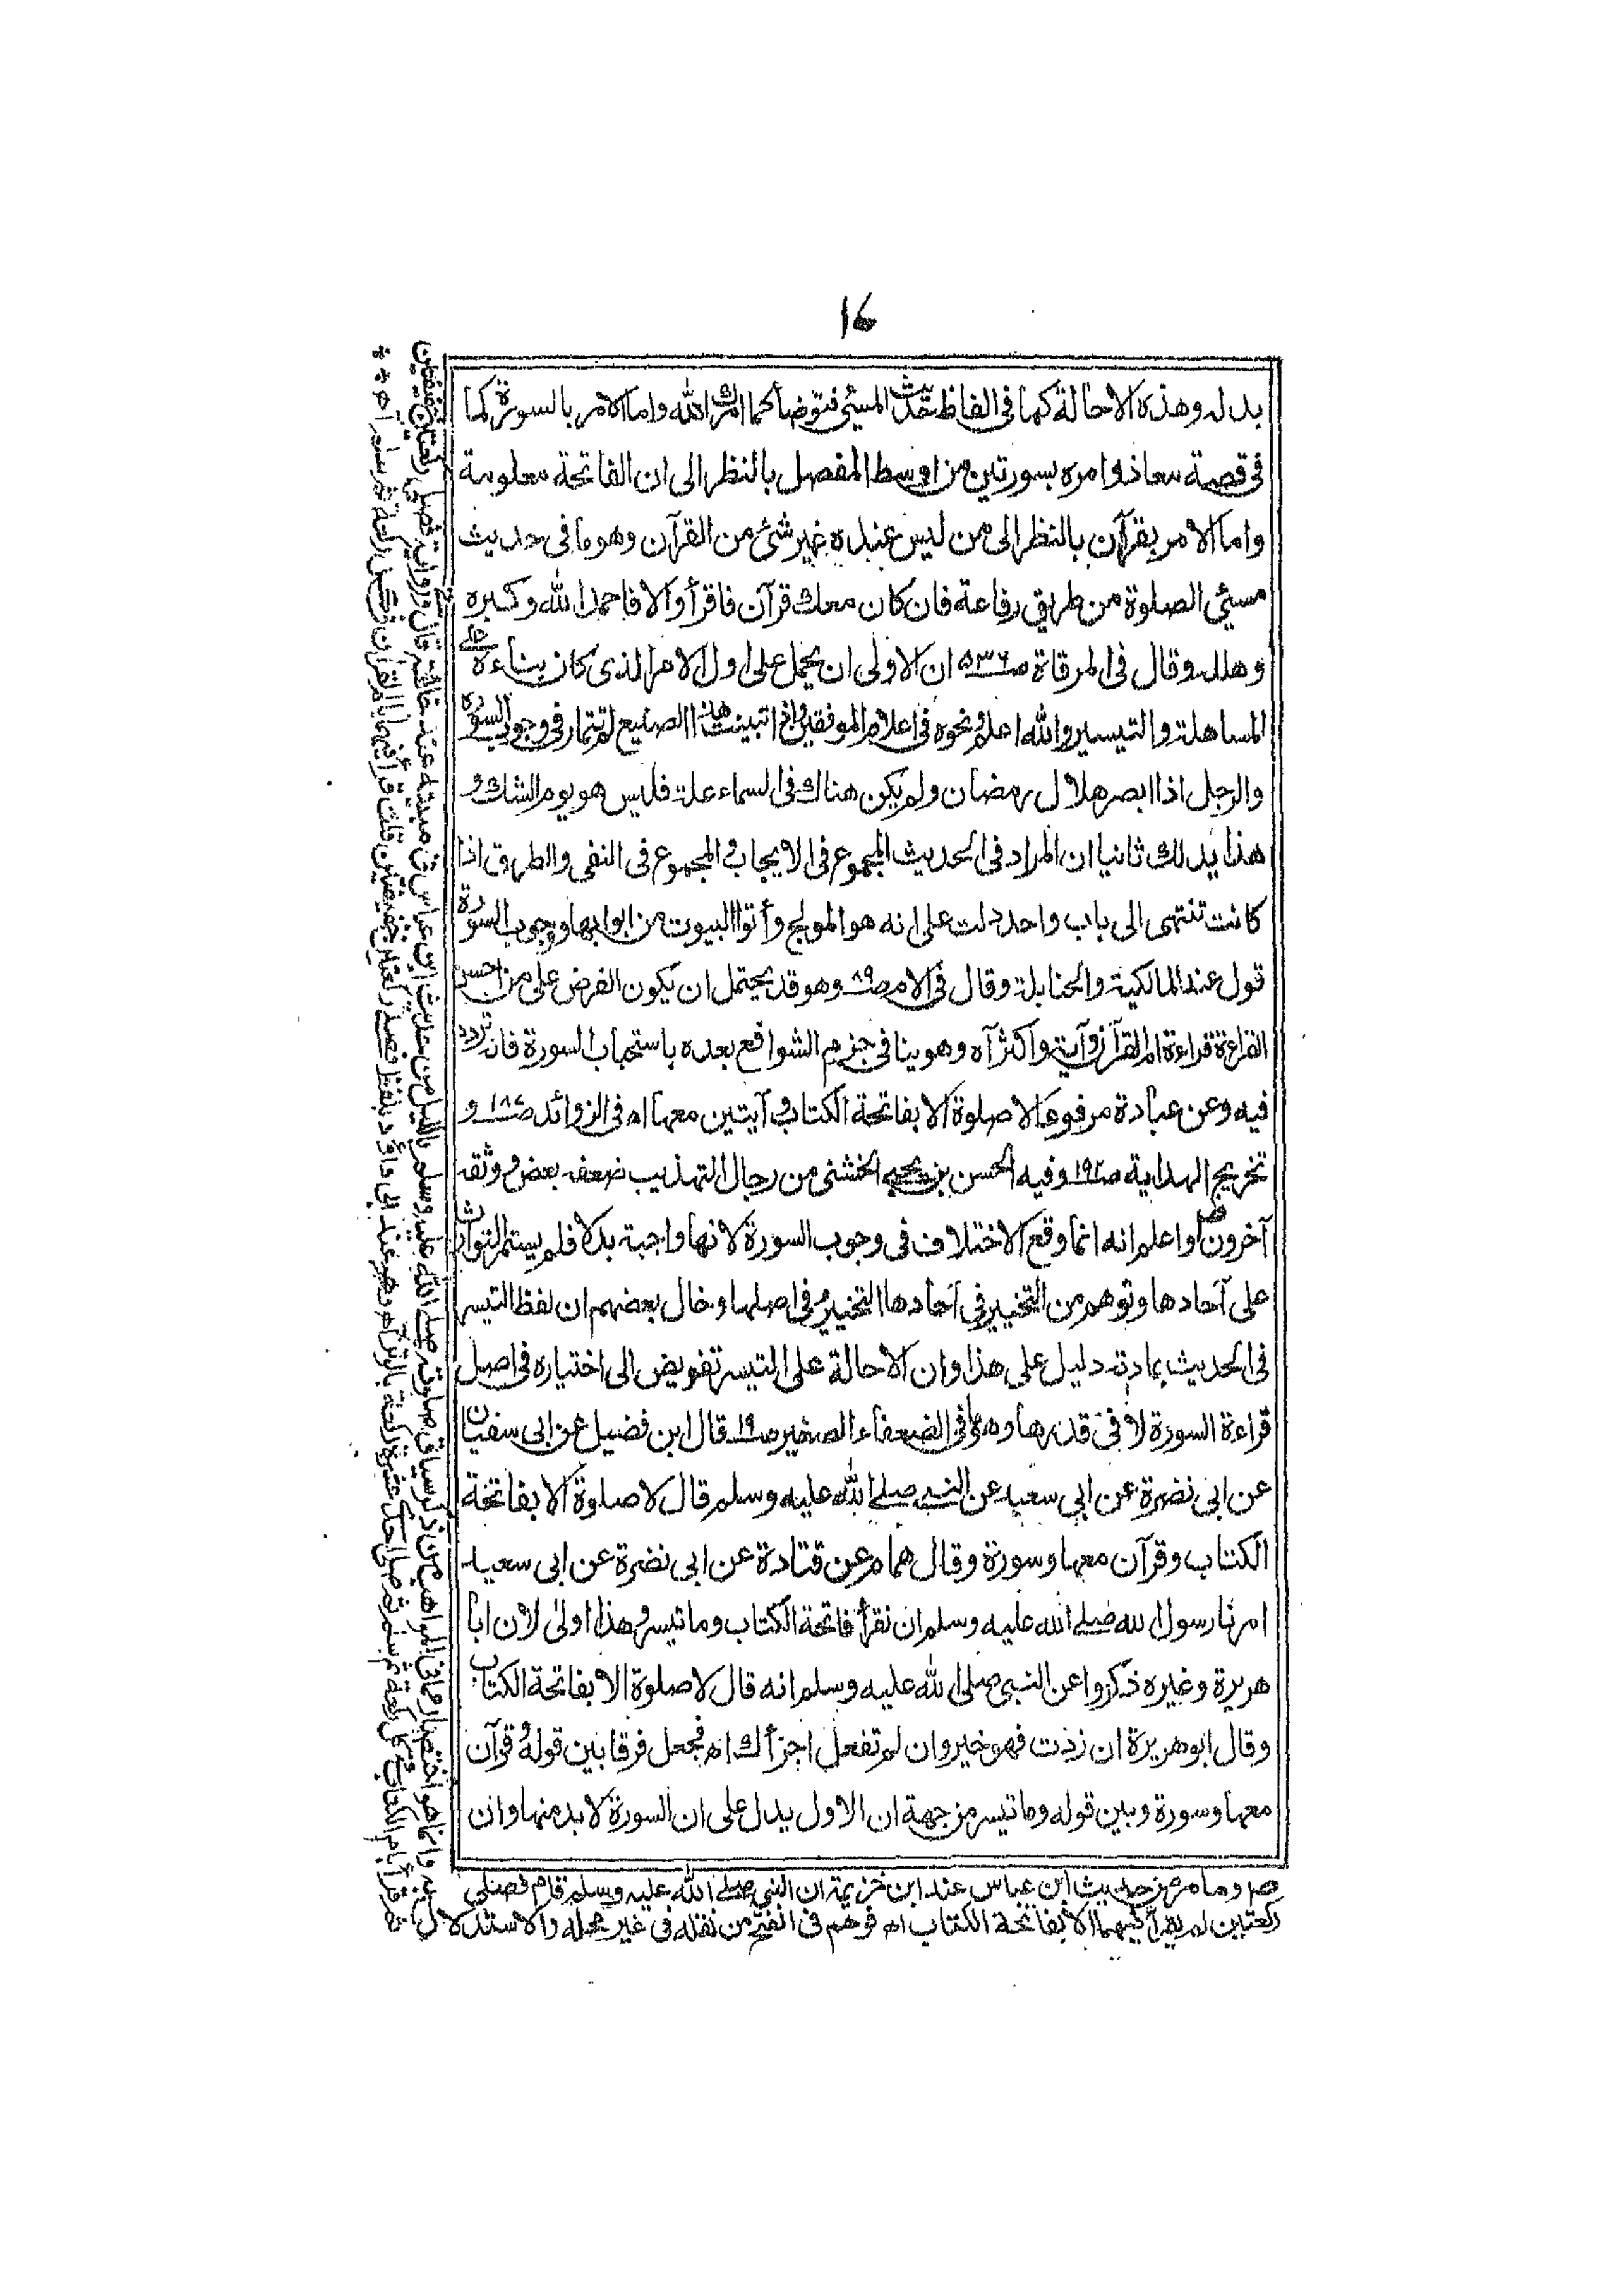 16
بدله وهذه الاحالة كما في الفاظ حديث المسئ فتوضأ كما امرك الله واما الامر بالسورة كما
في قصة معاذ وامره بسورتين من اوسط المفصل بالنظر الى ان الفاتحة معلومة
واما الامر بقرآن بالنظر الى من ليس عنده غير شئ من القرآن وهو ما في حديث
مسئ الصلوة من طريق رفاعة فان كان معك قرآن فاقرأ والا فاحمد الله وكبره
وهلله وقال في المرقاة ص٥٣٦ ان الاولى ان يحمل على اول الامر الذي كان بناءه على
المساهلة والتيسير والله اعلم ونحوه في اعلام الموقعين واذا تبينت هذا الصنيع لم تتمار في وجوب السورة
والرجل اذا ابصر هلال رمضان ولم يكن هناك في السماء علة فليس هو يوم الشك و
هذا يدلك ثانيا ان المراد في الحديث المجموع في الايجاب والمجموع في النفي والطرق اذا
كانت تنتهى الى باب واحد دلت على انه هو المولج وأتوا البيوت من ابوابها ووجوب السورة
قول عند المالكية والحنابلة وقال في الام ص٨٩ وهو قد يحتمل ان يكون الفرض على من احسن
القراءة قراءة ام القرآن وآية واكثر اه وهو ينافي جزم الشوافع بعده باستحباب السورة فانه تردد
فيه وعن عبادة مرفوعا لا صلوة الا بفاتحة الكتاب وآيتين معها اه في الزوائد ص١٨٧ و
تخريج الهداية ص١٩٢ وفيه الحسن بن يحيى الخشنى من رجال التهذيب ضعفه بعض ووثقه
آخرون ص واعلم انه انما وقع الاختلاف في وجوب السورة لانها واجبة بدلا فلم يستمر التوارث
على آحادها وتوهم من التخيير في آحادها التخيير في اصلها وخال بعضهم ان لفظ التيسر
في الحديث بمادته دليل على هذا وان الاحالة على التيسر تفويض الى اختياره في اصل
قراءة السورة لا في قدرها وهو في الضعفاء الصغير ص١٩ قال ابن فضيل عن ابي سفيان
عن ابي نضرة عن ابي سعيد عن النبي صلى الله عليه وسلم قال لا صلوة الا بفاتحة
الكتاب وقرآن معها وسورة وقال همام عن قتادة عن ابي نضرة عن ابي سعيد
امرنا رسول الله صلى الله عليه وسلم ان نقرأ فاتحة الكتاب وما تيسر وهذا اولى لان ابا
هريرة وغيره ذكروا عن النبي صلى الله عليه وسلم انه قال لا صلوة الا بفاتحة الكتاب
وقال ابو هريرة ان زدت فهو خير وان لم تفعل اجزأك اه فجعل فرقا بين قوله وقرآن
معها وسورة وبين قوله وما تيسر من جهة ان الاول يدل على ان السورة لا بد منها وان
ص وما مر من حديث ابن عباس عند ابن خزيمة ان النبي صلى الله عليه وسلم قام فصلى
ركعتين لم يقرأ فيهما الا بفاتحة الكتاب اه فوهم في الفتح من نقله في غير محله والاستدلال
به وانما هو اختصار كما في المواهب من ذكر سياق صلوته صلى الله عليه وسلم بالليل من حديث ابن عباس في مبيته عند خالته قال فصلى ركعتين خفيفتين